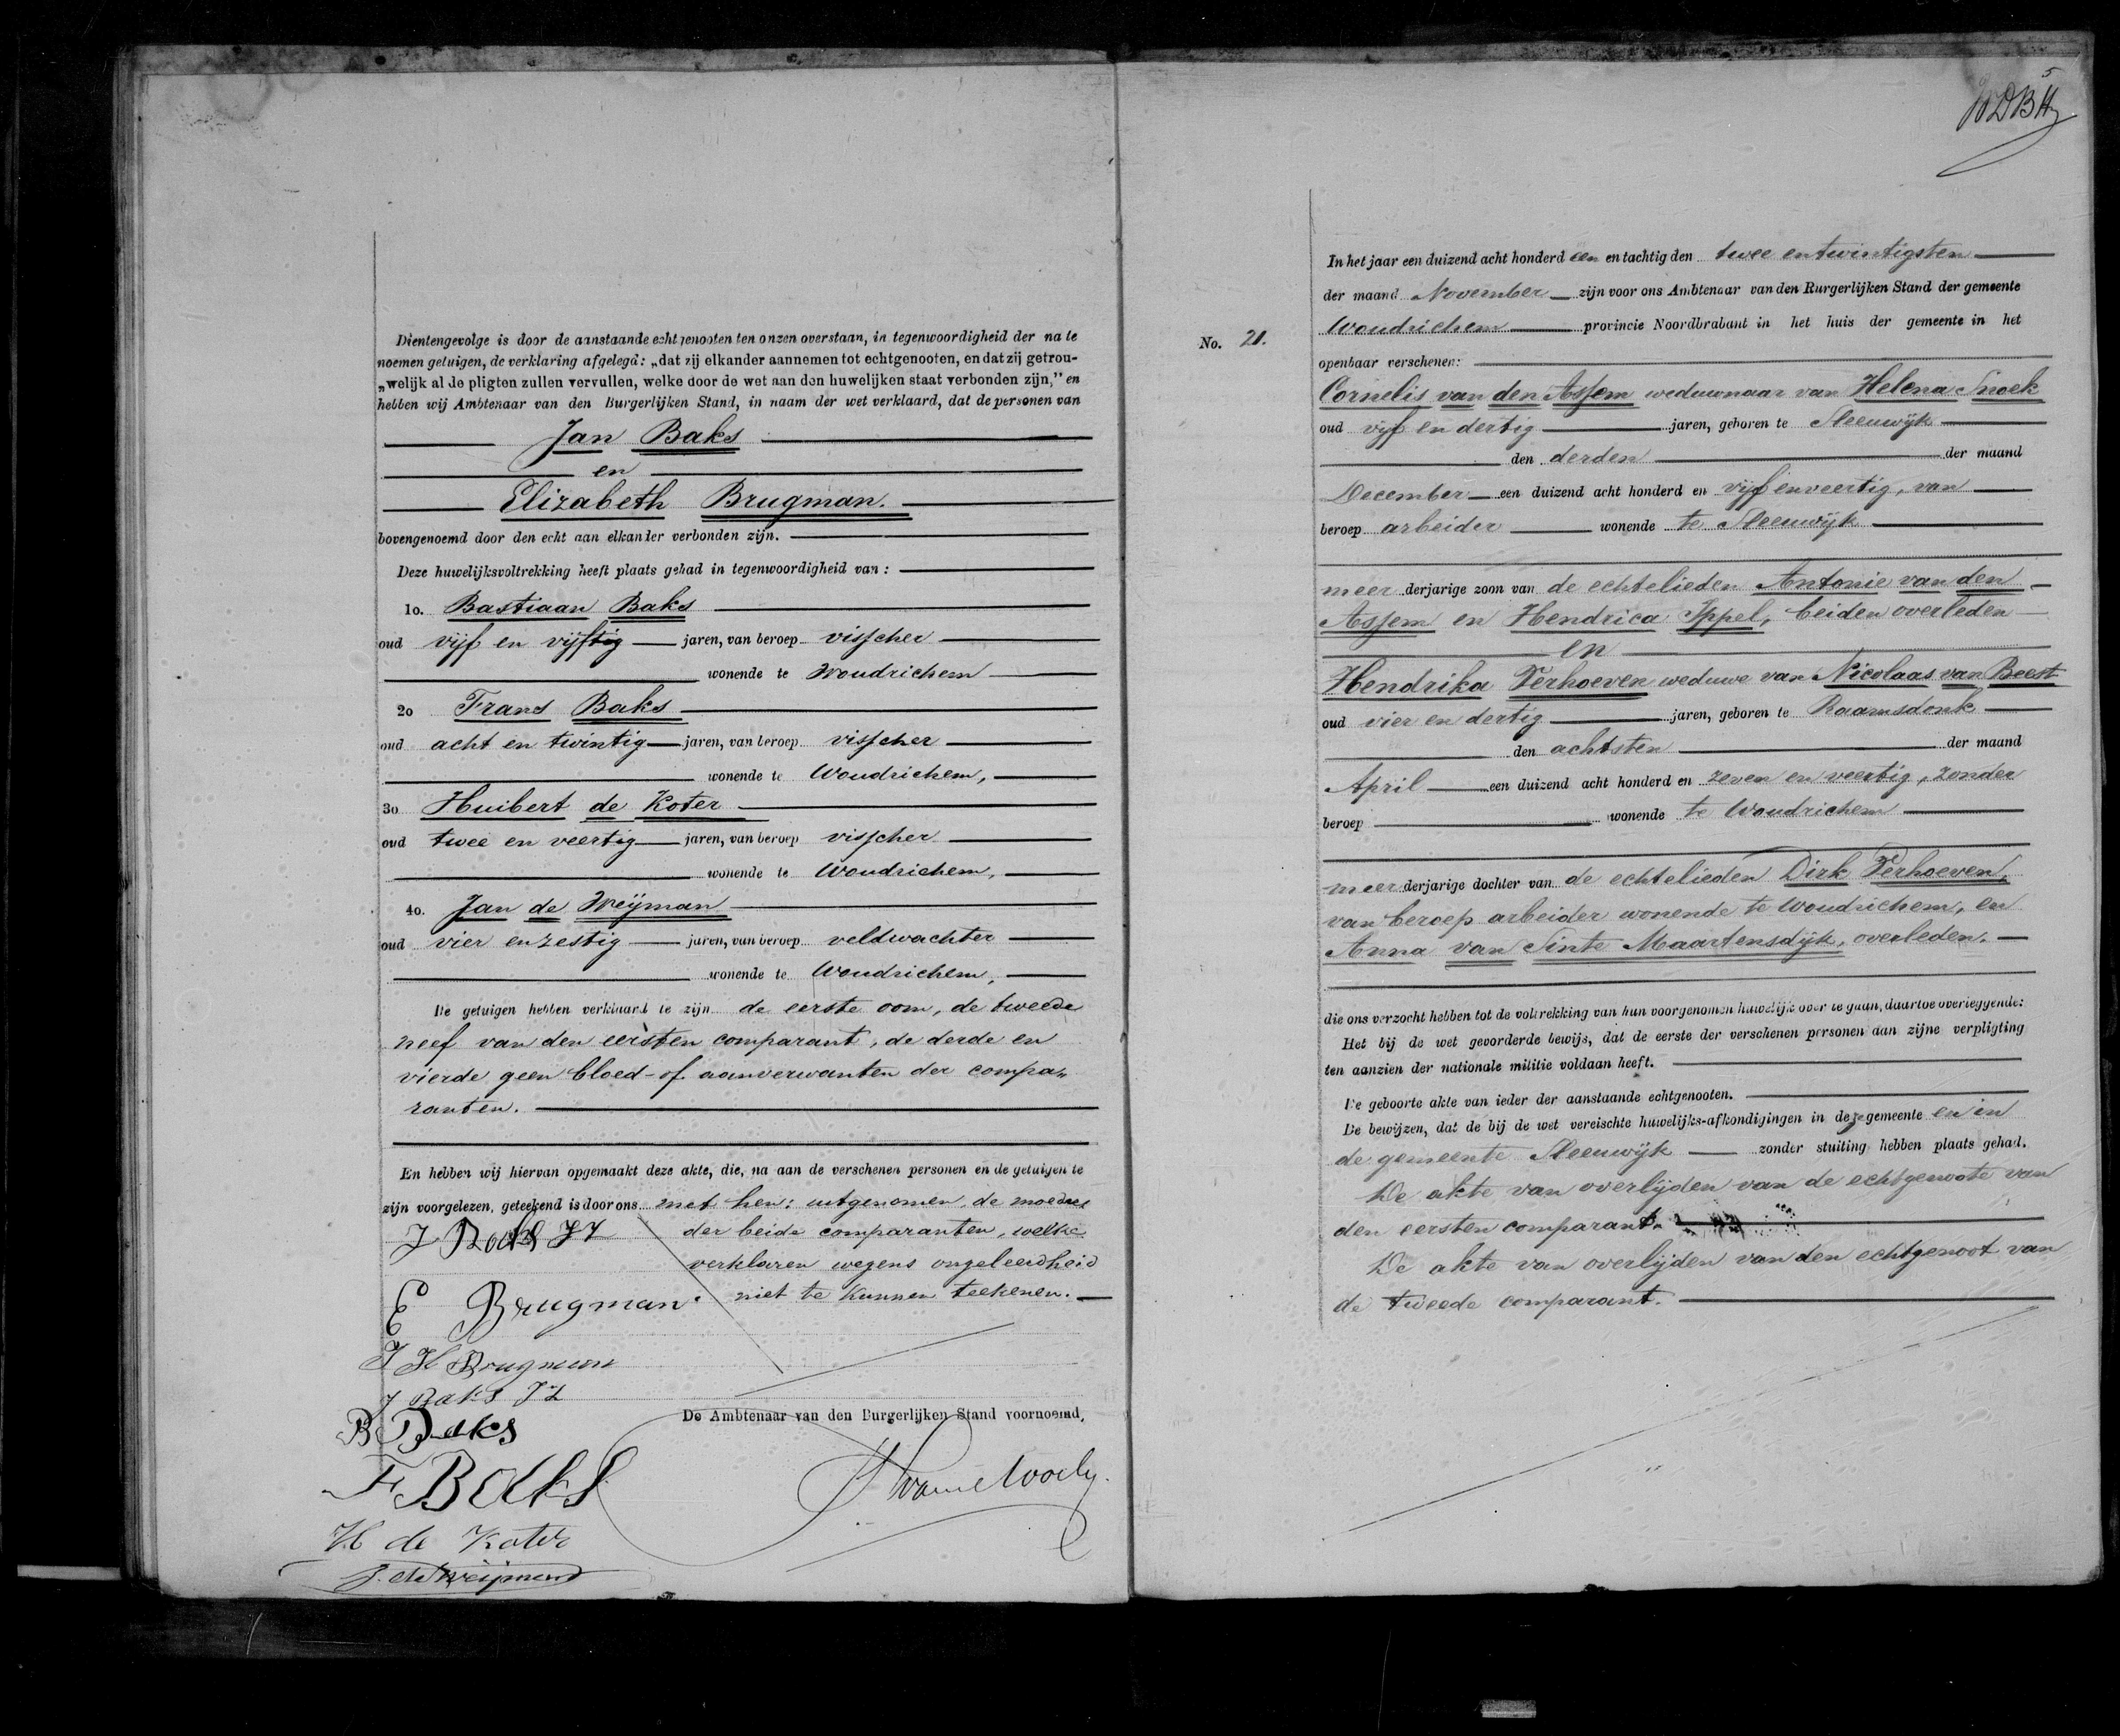 Dientengevolge is door de aanstaande echtgenooten ten onzen overstaan, in tegenwoordigheid der na te
noemen getuigen, de verklaring afgelegd: „dat zij elkander aannemen tot echtgenooten, en dat zij getrou-
„welijk al de pligten zullen vervullen, welke door de wet aan den huwelijken staat verbonden zijn,” en
hebben wij Ambtenaar van den Burgerlijken Stand, in naam der wet verklaard, dat de personen van
Jan Baks
en
Elizabeth Brugman.
bovengenoemd door den echt aan elkander verbonden zijn.
Deze huwelijksvoltrekking heeft plaats gehad in tegenwoordigheid van:
1o. Bastiaan Baks
oud vijf en vijftig jaren, van beroep visscher
wonende te Woudrichem
2o Frans Baks
oud acht en twintig jaren, van beroep visscher
wonende te Woudrichem,
3o Huibert de Koter
oud twee en veertig jaren, van beroep visscher
wonende te Woudrichem,
4o. Jan de Weijman
oud vier en zestig jaren, van beroep veldwachter
wonende te Woudrichem,
De getuigen hebben verklaard te zijn de eerste oom, de tweede
neef van den eersten comparant, de derde en
vierde geen bloed- of aanverwanten der compa„
ranten.
En hebben wij hiervan opgemaakt deze akte, die, na aan de verschenen personen en de getuigen te
zijn voorgelezen, geteekend is door ons met hen: uitgenomen de moeder
der beide comparanten, welke
verklaren wegens ongeleerdheid
niet te kunnen teekenen.
J Baks JZ
E Brugman
J H Brugman
J Baks JZ
B Baks
F Baks
H de Koter
J. de Weijman
De Ambtenaar van den Burgerlijken Stand voornoemd,
5
No. 21.
In het jaar een duizend acht honderd een en tachtig den twee en twintigsten
der maand November zijn voor ons Ambtenaar van den Burgerlijken Stand der gemeente
Woudrichem provincie Noordbrabant in het huis der gemeente in het
openbaar verschenen:
Cornelis van den Assem weduwnaar van Helena Snoek
oud vijf en dertig jaren, geboren te Sleeuwijk
den derden der maand
December een duizend acht honderd en vijf en veertig, van
beroep arbeider wonende te Sleeuwijk
meer derjarige zoon van de echtelieden Antonie van den
Assem en Hendrica Ippel, beiden overleden
en
Hendrika Verhoeven weduwe van Nicolaas van Beest
oud vier en dertig jaren, geboren te Raamsdonk
den achtsten der maand
April een duizend acht honderd en zeven en veertig, zonder
beroep wonende te Woudrichem
meer derjarige dochter van de echtelieden Dirk Verhoeven,
van beroep arbeider wonende te Woudrichem, en
Anna van Sinte Maartensdijk, overleden.
die ons verzocht hebben tot de voltrekking van hun voorgenomen huwelijk over te gaan, daartoe overleggende:
Het bij de wet gevorderde bewijs, dat de eerste der verschenen personen aan zijne verpligting
ten aanzien der nationale militie voldaan heeft.
De geboorte akte van ieder der aanstaande echtgenooten.
De bewijzen, dat de bij de wet vereischte huwelijks-afkondigingen in deze gemeente en in
de gemeente Sleeuwijk zonder stuiting hebben plaats gehad.
De akte van overlijden van de echtgenoote van
den eersten comparant.
De akte van overlijden van den echtgenoot van
de tweede comparant.